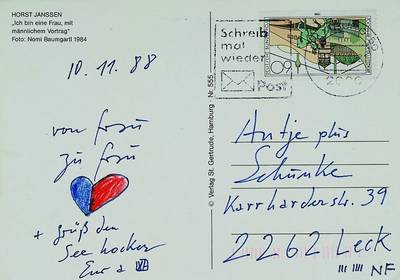 HORST JANSSEN
„Ich bin eine Frau, mit
männlichem Vortrag"
Foto: Nomi Baumgartl 1984
10.11.88
von frau
zu frau
+ grüß den
See hocker
Eur a
© Verlag St. Gertrude, Hamburg Nr. 555
Schreib
mal
wieder
Post
90
Antje plus
Schünke
Karrharderstr. 39
2262 Leck
NF